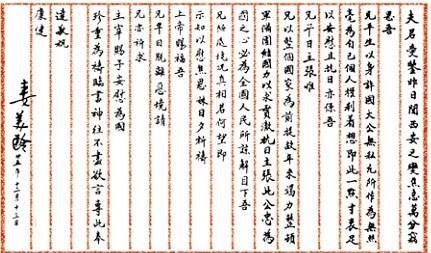 夫君愛鑒昨日聞西安之變焦急萬分竊
思吾
兄平生以身許國大公無私凡所作為無無絲
毫為自己個人權利着想即此一點寸衷足
以安慰且抗日亦係吾
兄平日主張惟
兄以整個國家為前提故年來竭力整頓
軍備團結國力以求貫澈抗日主張此公忠為
國之心必為全國人民所諒解目下吾
兄所處境況真相若何望即
示知以慰焦思妹日夕祈禱
上帝賜福吾
兄早日脫離惡境請
兄亦祈求
主宰賜予安慰為國
珍重為禱臨書神往不盡欲言專此奉
達敬祝
康健
妻美齡
廿五年十二月十三日